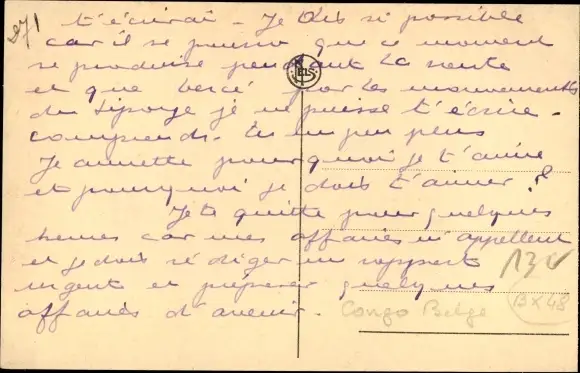 271
t'écrirai - Je dis si possible
car il se pourra que ce moment
se produise pendant la route
et que bercé par les mouvements
du je ne puisse t'écrire -
comprends-tu un peu plus
Je annette pourquoi je t'aime
et pourquoi je dois t'aimer ?
Je te quitte pour quelques
heures car mes affaires m'appellent
et je dois rédiger un rapport
urgent et préparer quelques
affaires d'avenir.
NELS
13V
Congo Belge
B X 48